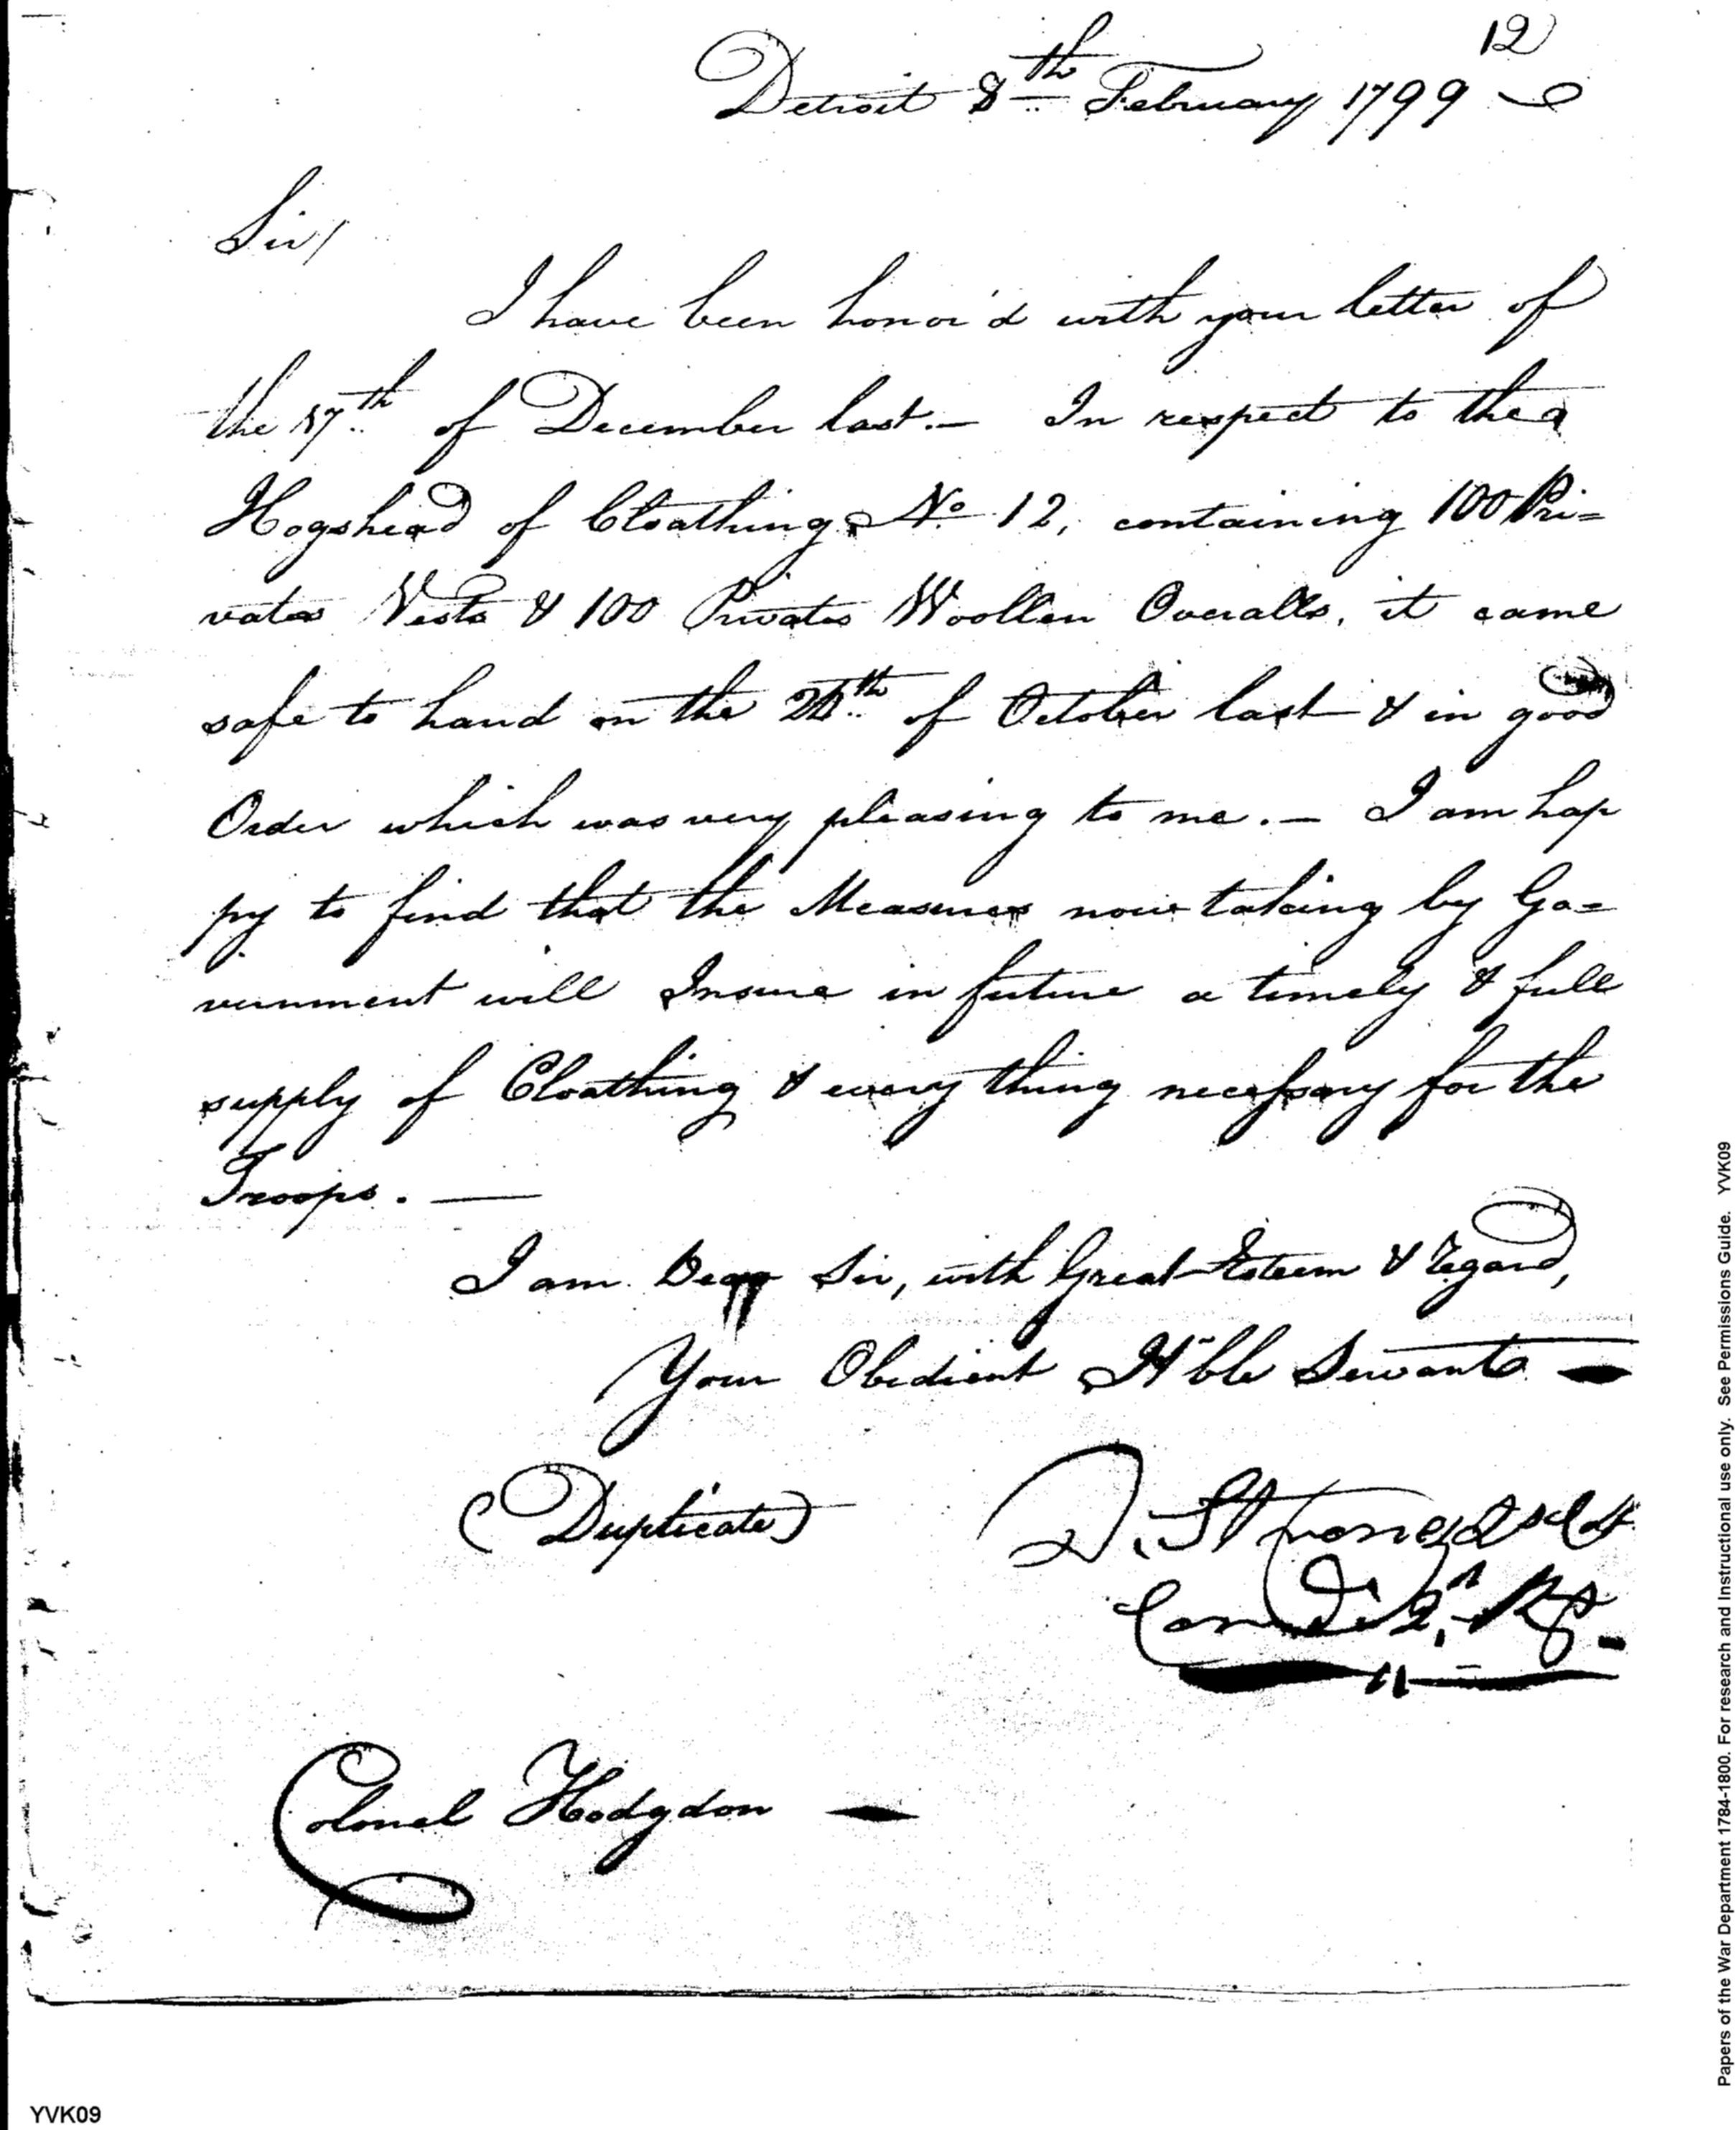 12
Detroit 8th February 1799
Sir/
I have been honor'd with your letter of
the 17th of December last.— In respect to the
Hogshead of Cloathing No 12, containing 100 Pri=
vates Vests & 100 Privates Woollen Overalls, it came
safe to hand on the of October last & in good
Order which was very pleasing to me.— I am hap
py to find that the Measures now taking by Go=
vernment will Insure in future a timely & full
supply of Cloathing & every thing necessary for the
Troops. —
I am Dear Sir, with Great Esteem & Regard,
Your Obedient H'ble Servant
(Duplicate)
D. Strong
Comd. 2d Rt.
Colonel Hodgdon
YVK09
Papers of the War Department 1784-1800. For research and instructional use only. See Permissions Guide. YVK09